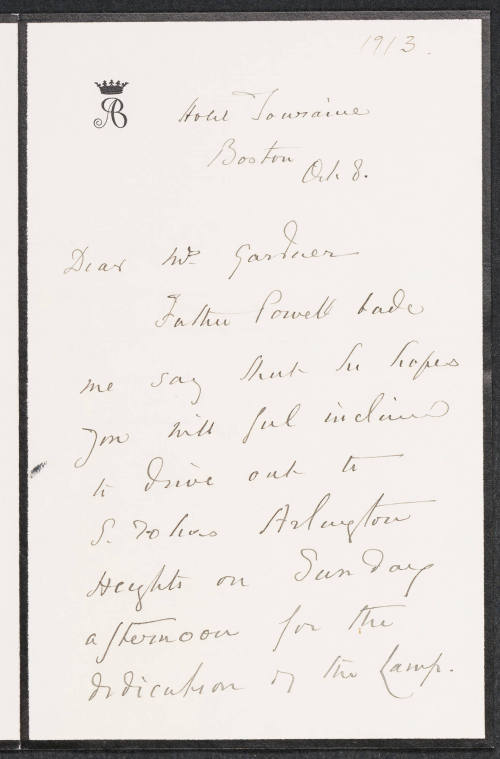 1913.
AB
Hotel Touraine
Boston
Oct 8.
Dear Mrs. Gardner
Father Powell bade
me say that he hopes
you will feel inclined
to drive out to
S. Johns Arlington
Heights on Sunday
afternoon for the
dedication of the Lamp.